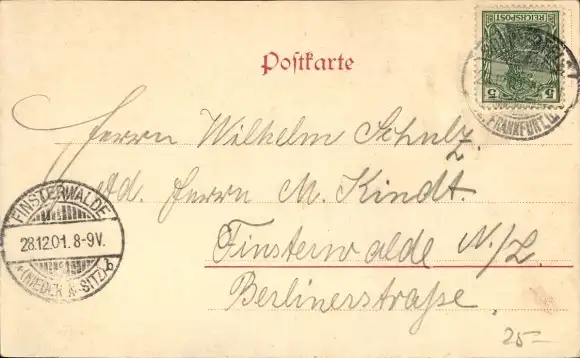 5 REICHSPOST 5
Postkarte
FRANKFURT
Herrn Wilhelm Schulz
Herrn M. Kindt.
Finsterwalde N./L.
Berlinerstraße.
FINSTERWALDE
28.12.01. 8-9V.
b
25-